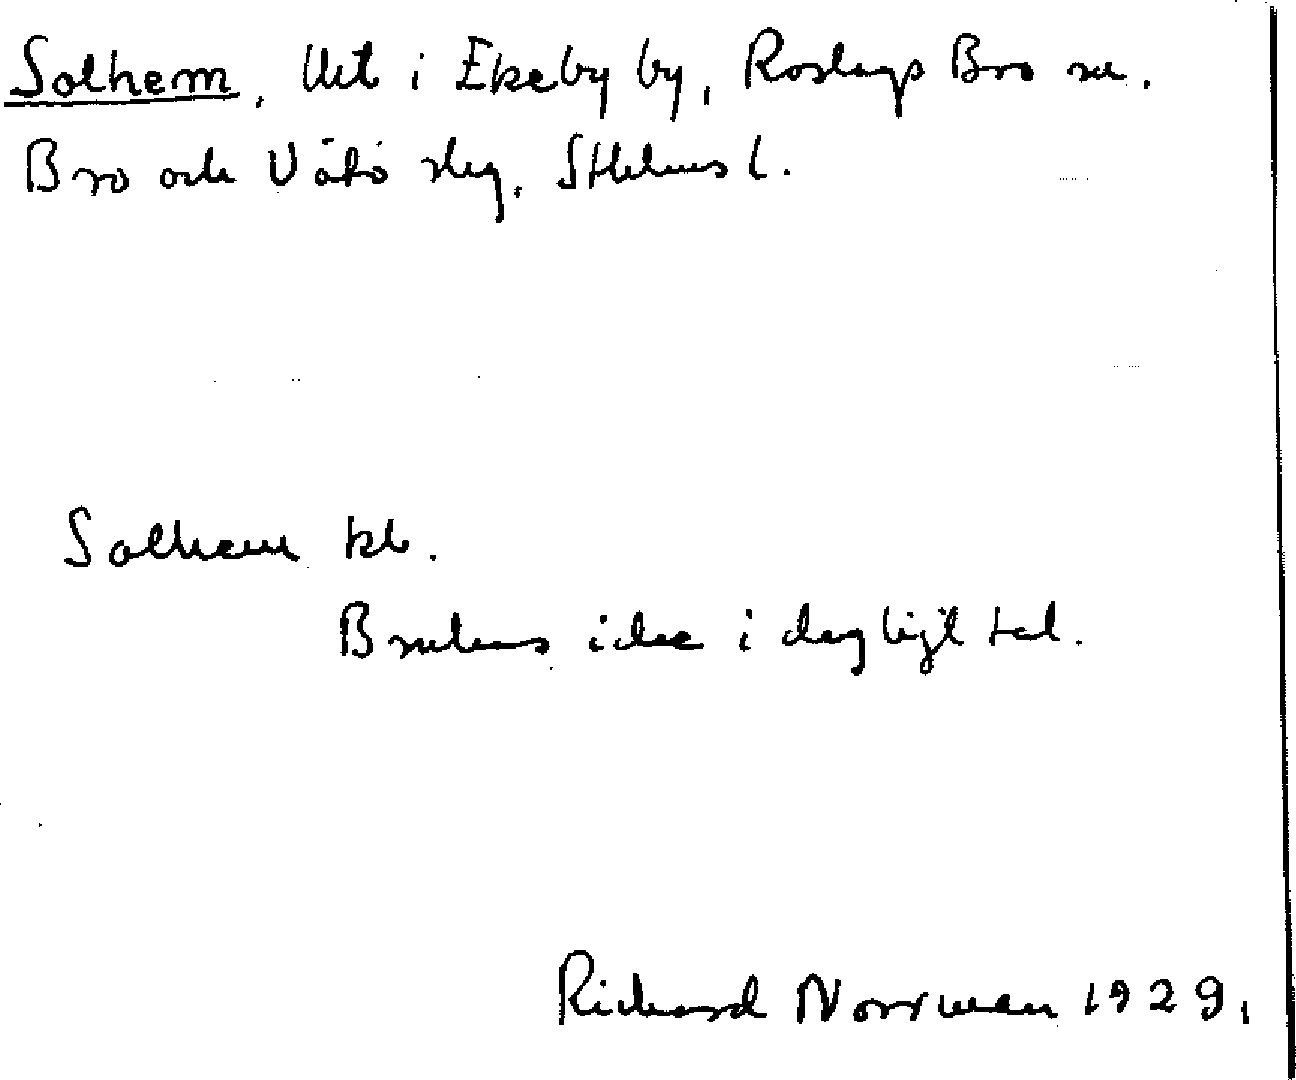 Solhem, Utt i Ekeby by, Roslags Bro sn.
Bro och Vätö slg, Sthlms l.
Solhem kb.
Brukas icke i dagligt tal.
Richard Norrman 1929.